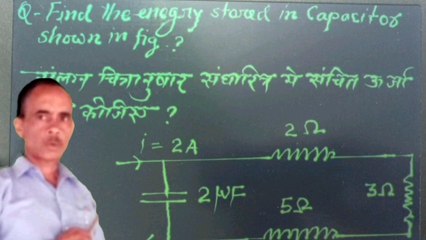 Q- Find the enegry stored in Capacitor
shown in fig.?
संलग्न चित्रानुसार संधारित्र मे संचित ऊर्जा
कीजिए ?
i = 2A
2 Ω
2 μF
3Ω
5Ω